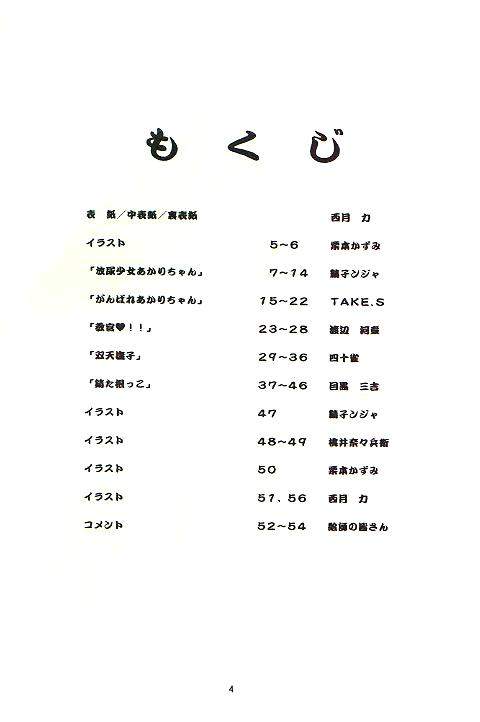 もくじ
表 紙／中表紙／裏表紙 西月 力
イラスト 5～6 栗本かずみ
「放尿少女あかりちゃん」 7～14 鶴子ンジャ
「がんばれあかりちゃん」 15～22 TAKE.S
「教官♥！！」 23～28 渡辺
「双天憮子」 29～36 四十雀
「た根っこ」 37～46 目黒 三吉
イラスト 47 子ンジャ
イラスト 48～49 桃井奈々兵衛
イラスト 50 かずみ
イラスト 51、56 西月 力
コメント 52～54 絵師の皆さん
4